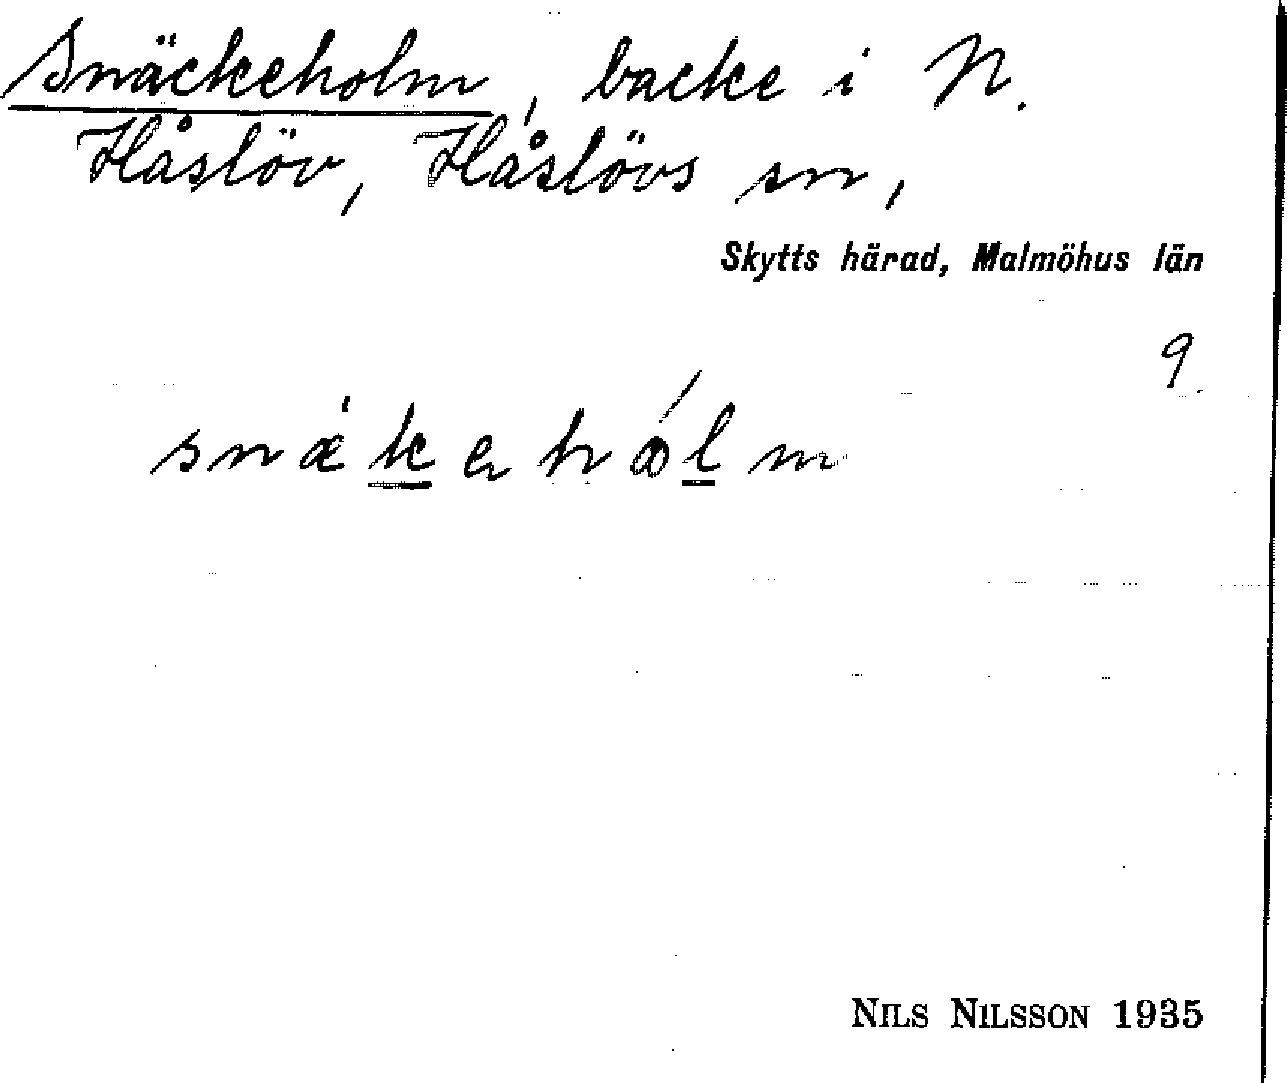 Snäckeholm, backe i N.
Håslöv, Håslövs sn,
Skytts härad, Malmöhus län
9.
NILS NILSSON 1935